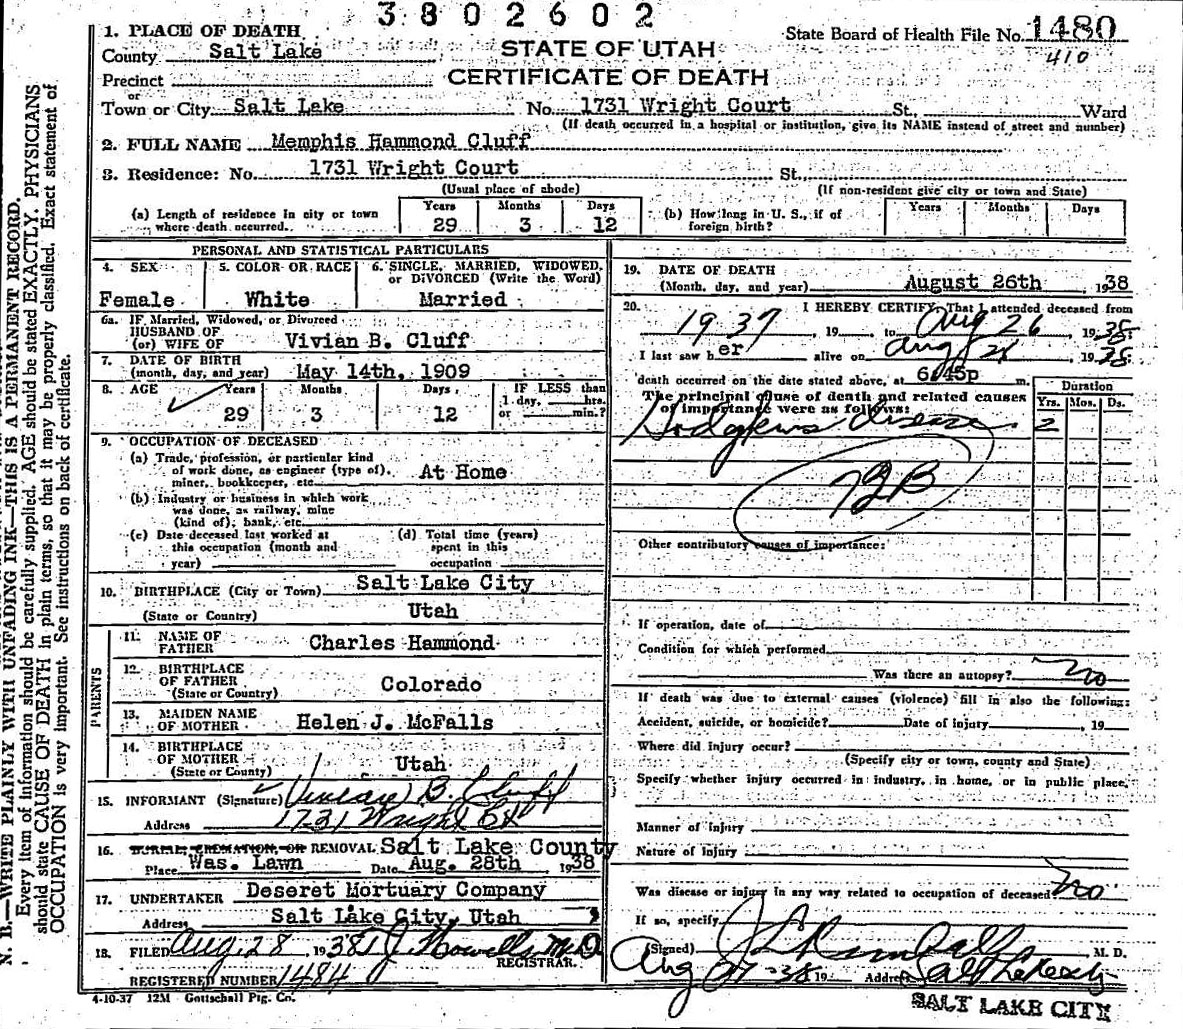 3802602
1. PLACE OF DEATH
State Board of Health File No. 1480
County Salt Lake
STATE OF UTAH
410
Precinct
CERTIFICATE OF DEATH
or
Town or City Salt Lake No. 1731 Wright Court St., Ward
(If death occurred in a hospital or institution, give its NAME instead of street and number)
2. FULL NAME Memphis Hammond Cluff
3. Residence: No. 1731 Wright Court St.,
(Usual place of abode) (If non-resident give city or town and State)
(a) Length of residence in city or town where death occurred. Years 29 Months 3 Days 12
(b) How long in U. S., if of foreign birth? Years Months Days
PERSONAL AND STATISTICAL PARTICULARS
4. SEX Female
5. COLOR OR RACE White
6. SINGLE, MARRIED, WIDOWED, or DIVORCED (Write the Word) Married
6a. IF Married, Widowed, or Divorced
HUSBAND OF
(or) WIFE OF Vivian B. Cluff
7. DATE OF BIRTH
(month, day, and year) May 14th, 1909
8. AGE Years 29 Months 3 Days 12 IF LESS than 1 day, hrs. or min.?
9. OCCUPATION OF DECEASED
(a) Trade, profession, or particular kind
of work done, as engineer (type of),
miner, bookkeeper, etc. At Home
(b) Industry or business in which work
was done, as railway, mine
(kind of), bank, etc.
(c) Date deceased last worked at
this occupation (month and
year)
(d) Total time (years)
spent in this
occupation
10. BIRTHPLACE (City or Town) Salt Lake City
(State or Country) Utah
PARENTS
11. NAME OF FATHER Charles Hammond
12. BIRTHPLACE OF FATHER (State or Country) Colorado
13. MAIDEN NAME OF MOTHER Helen J. McFalls
14. BIRTHPLACE OF MOTHER (State or Country) Utah
15. INFORMANT (Signature) Vivian B. Cluff
Address 1731 Wright Ct
16. BURIAL, CREMATION, OR REMOVAL Salt Lake County
Place Was. Lawn Date Aug. 28th 1938
17. UNDERTAKER Deseret Mortuary Company
Address Salt Lake City, Utah
18. FILED Aug. 28, 1938 T J Howells M.D
REGISTRAR.
REGISTERED NUMBER 1484
4-10-37 12M Gottschall Ptg. Co.
19. DATE OF DEATH
(Month, day, and year) August 26th, 1938
20. I HEREBY CERTIFY, That I attended deceased from
1937, 19 to Aug 26, 1938
I last saw her alive on Aug 26, 1938
death occurred on the date stated above, at 6:45p m.
The principal cause of death and related causes
of importance were as follows:
Duration
Yrs. Mos. Ds.
Hodgkins disease 2
72B
Other contributory causes of importance:
If operation, date of
Condition for which performed
Was there an autopsy? no
If death was due to external causes (violence) fill in also the following:
Accident, suicide, or homicide? Date of injury , 19
Where did injury occur?
(Specify city or town, county and State)
Specify whether injury occurred in industry, in home, or in public place.
Manner of Injury
Nature of Injury
Was disease or injury in any way related to occupation of deceased? no
If so, specify
(Signed) M. D.
Aug 27-38 19 Address Salt Lake City
SALT LAKE CITY
N. B.—WRITE PLAINLY WITH UNFADING INK—THIS IS A PERMANENT RECORD.
Every item of information should be carefully supplied. AGE should be stated EXACTLY. PHYSICIANS
should state CAUSE OF DEATH in plain terms, so that it may be properly classified. Exact statement of
OCCUPATION is very important. See instructions on back of certificate.